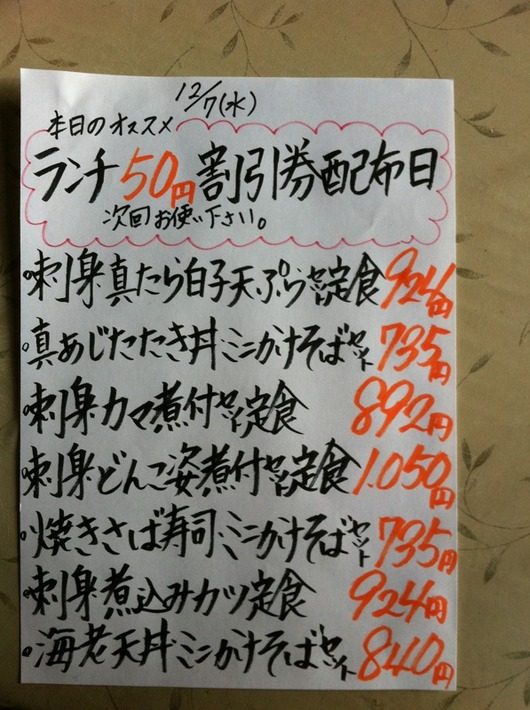 12/7(水)
本日のオススメ
ランチ50円割引券配布日
次回お使い下さい。
・刺身・真たら白子天ぷらセット定食 924円
・真あじたたき丼・ミニかけそばセット 735円
・刺身・カマ煮付セット定食 892円
・刺身・どんこ姿煮付セット定食 1.050円
・焼きさば寿司・ミニかけそばセット 735円
・刺身・煮込みカツ定食 924円
・海老天丼・ミニかけそばセット 840円